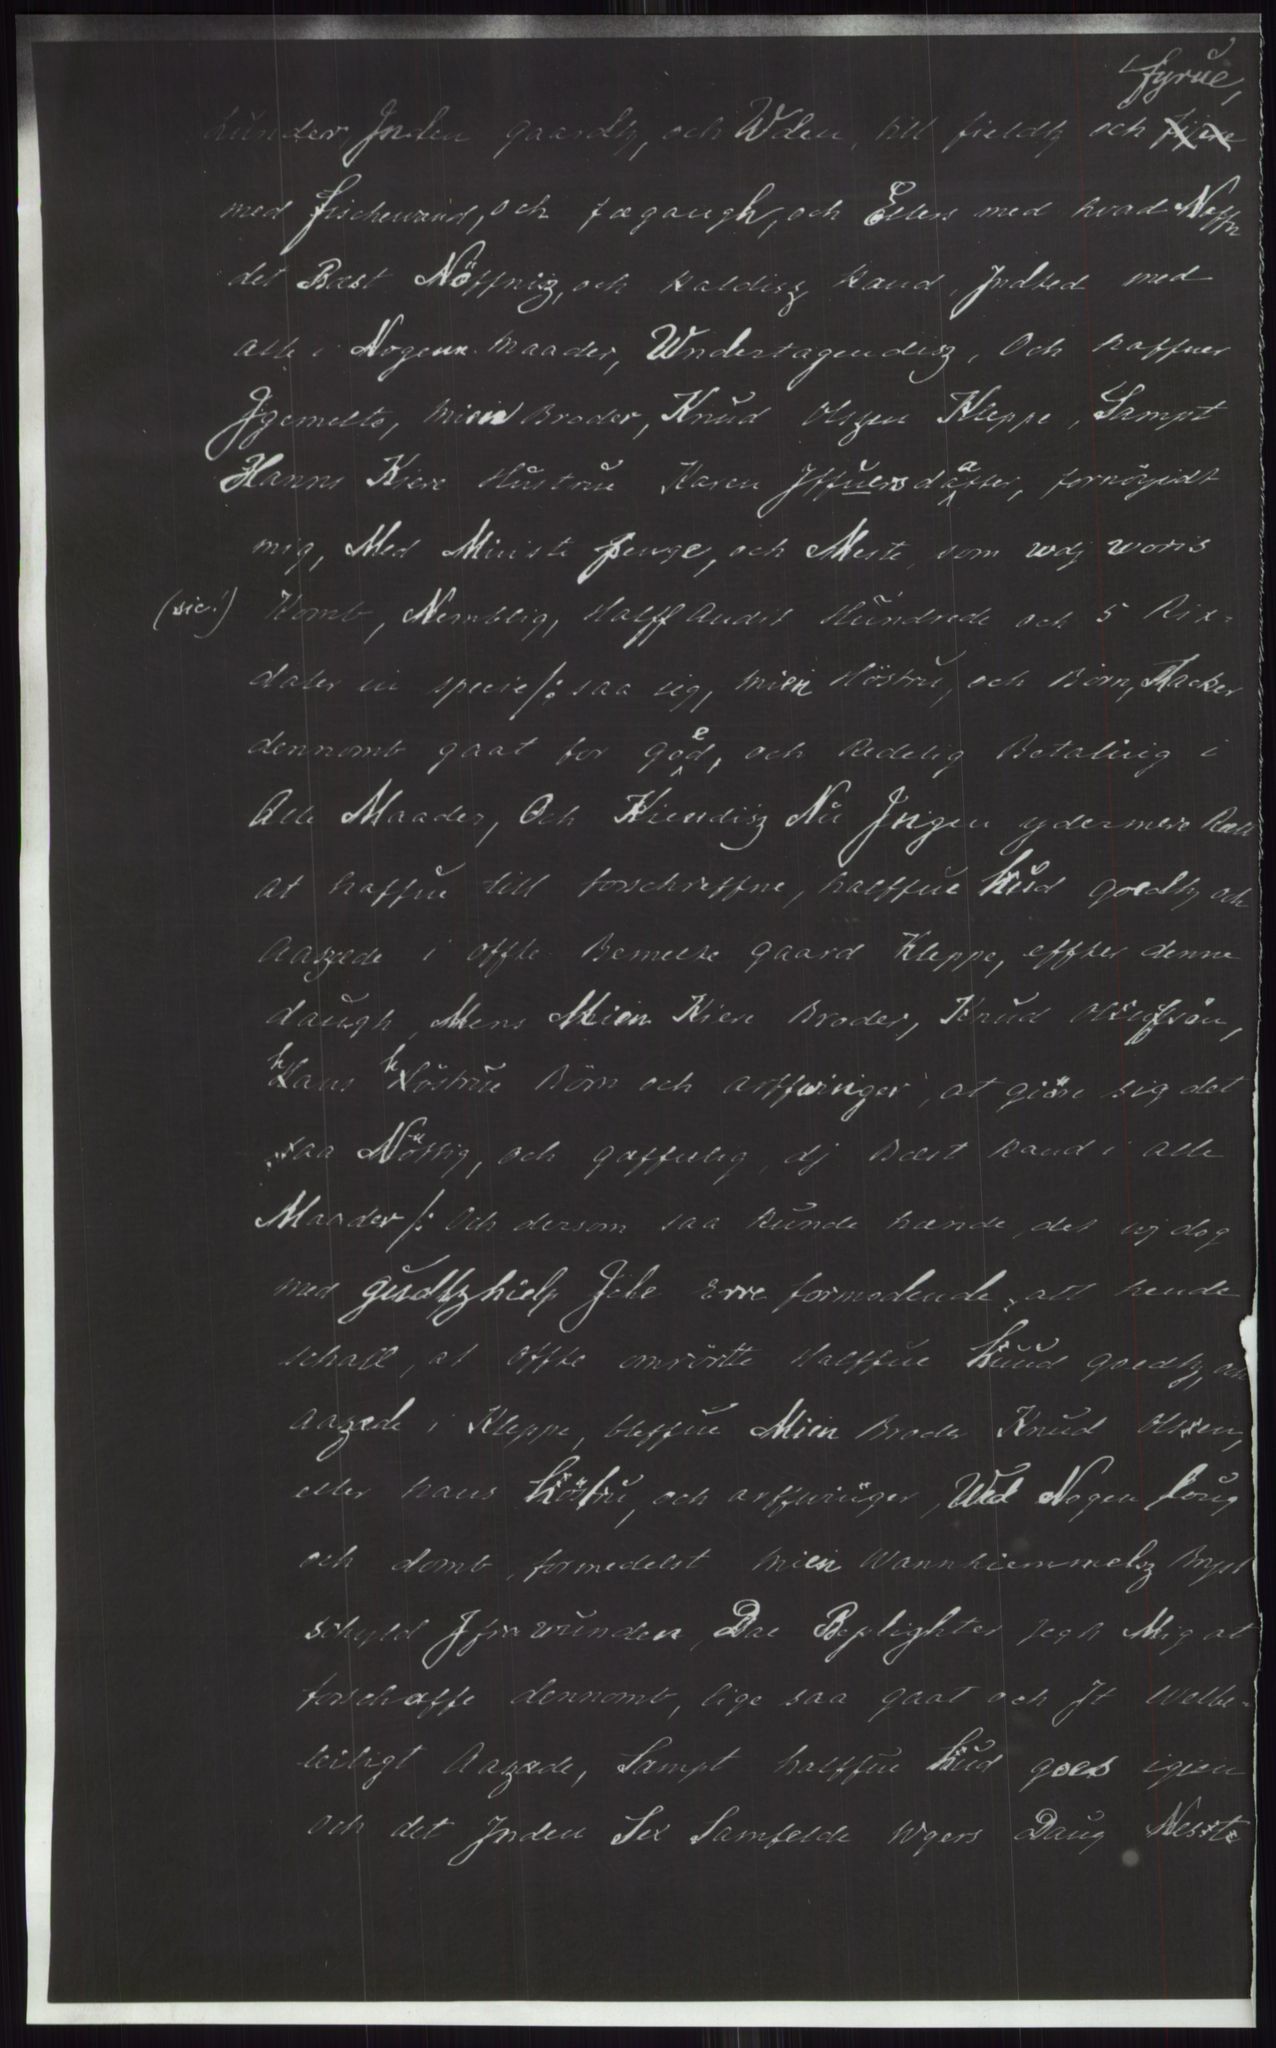 fyrüe,
hünder Jnden gaardtz, och Wden, till fieldtz och fijre
med fischewand, och fægangh, och Ellers med hvad Neffn
det Bæst Nöffnis, och kaldisz kand, Jndted med
alle i Nogenn Maader, Wndertagendisz, Och haffuer
Jgemelte, Mien Broder, Knud Olszen Kleppe, Sampt
Hanns Kiere Hüstrue Karen Jffuersdaatter, fornöyidt
mig, Med Minste penge, och Meste, som wdj woris
(sic!) Komb, Nemblig, Halff Andit Hündrede och 5 Rix-
daler in specie /: saa ieg, mien Höstru, och Börn, Tacker
dennomb gaat for goed, och Redelig Betaling i
Alle Maader, Och Kiendisz Nu Jngen ydermere Rett
at haffue till forschreffne, halffue hüd goedtz och
Aasæde i offte Bemelte gaard Kleppe, effter denne
daugh, Mens Mien Kiere Broder, Knud Olufsön,
hans höstrue Börn och arffwinger, at giöre sig det
saa Nöttig, och gaffnlig, dj Bæst kand i alle
Maader /: Och dersom saa kunde hænde, det wj dog
med gudtzhielp Jche Erre formodende, att hende
schall, at offte omrörtte Halffue huud goedtz, och
Aasæde i Kleppe, bleffue Mien Broder Knud Olszen,
eller hans höstru, och arffwinger, Wed Nogen loug
och domb, formedelst Mien Wannhiemmelsz Bryst
schyld Jfrawunden, Da Beplighter jegh Mig at
forschaffe dennomb, lige saa gaat och Jt Welbe-
leiligt Aasæde, Sampt halffue hüd goes igien
och det Jnden Sex Samfelde wgers Daug Neste